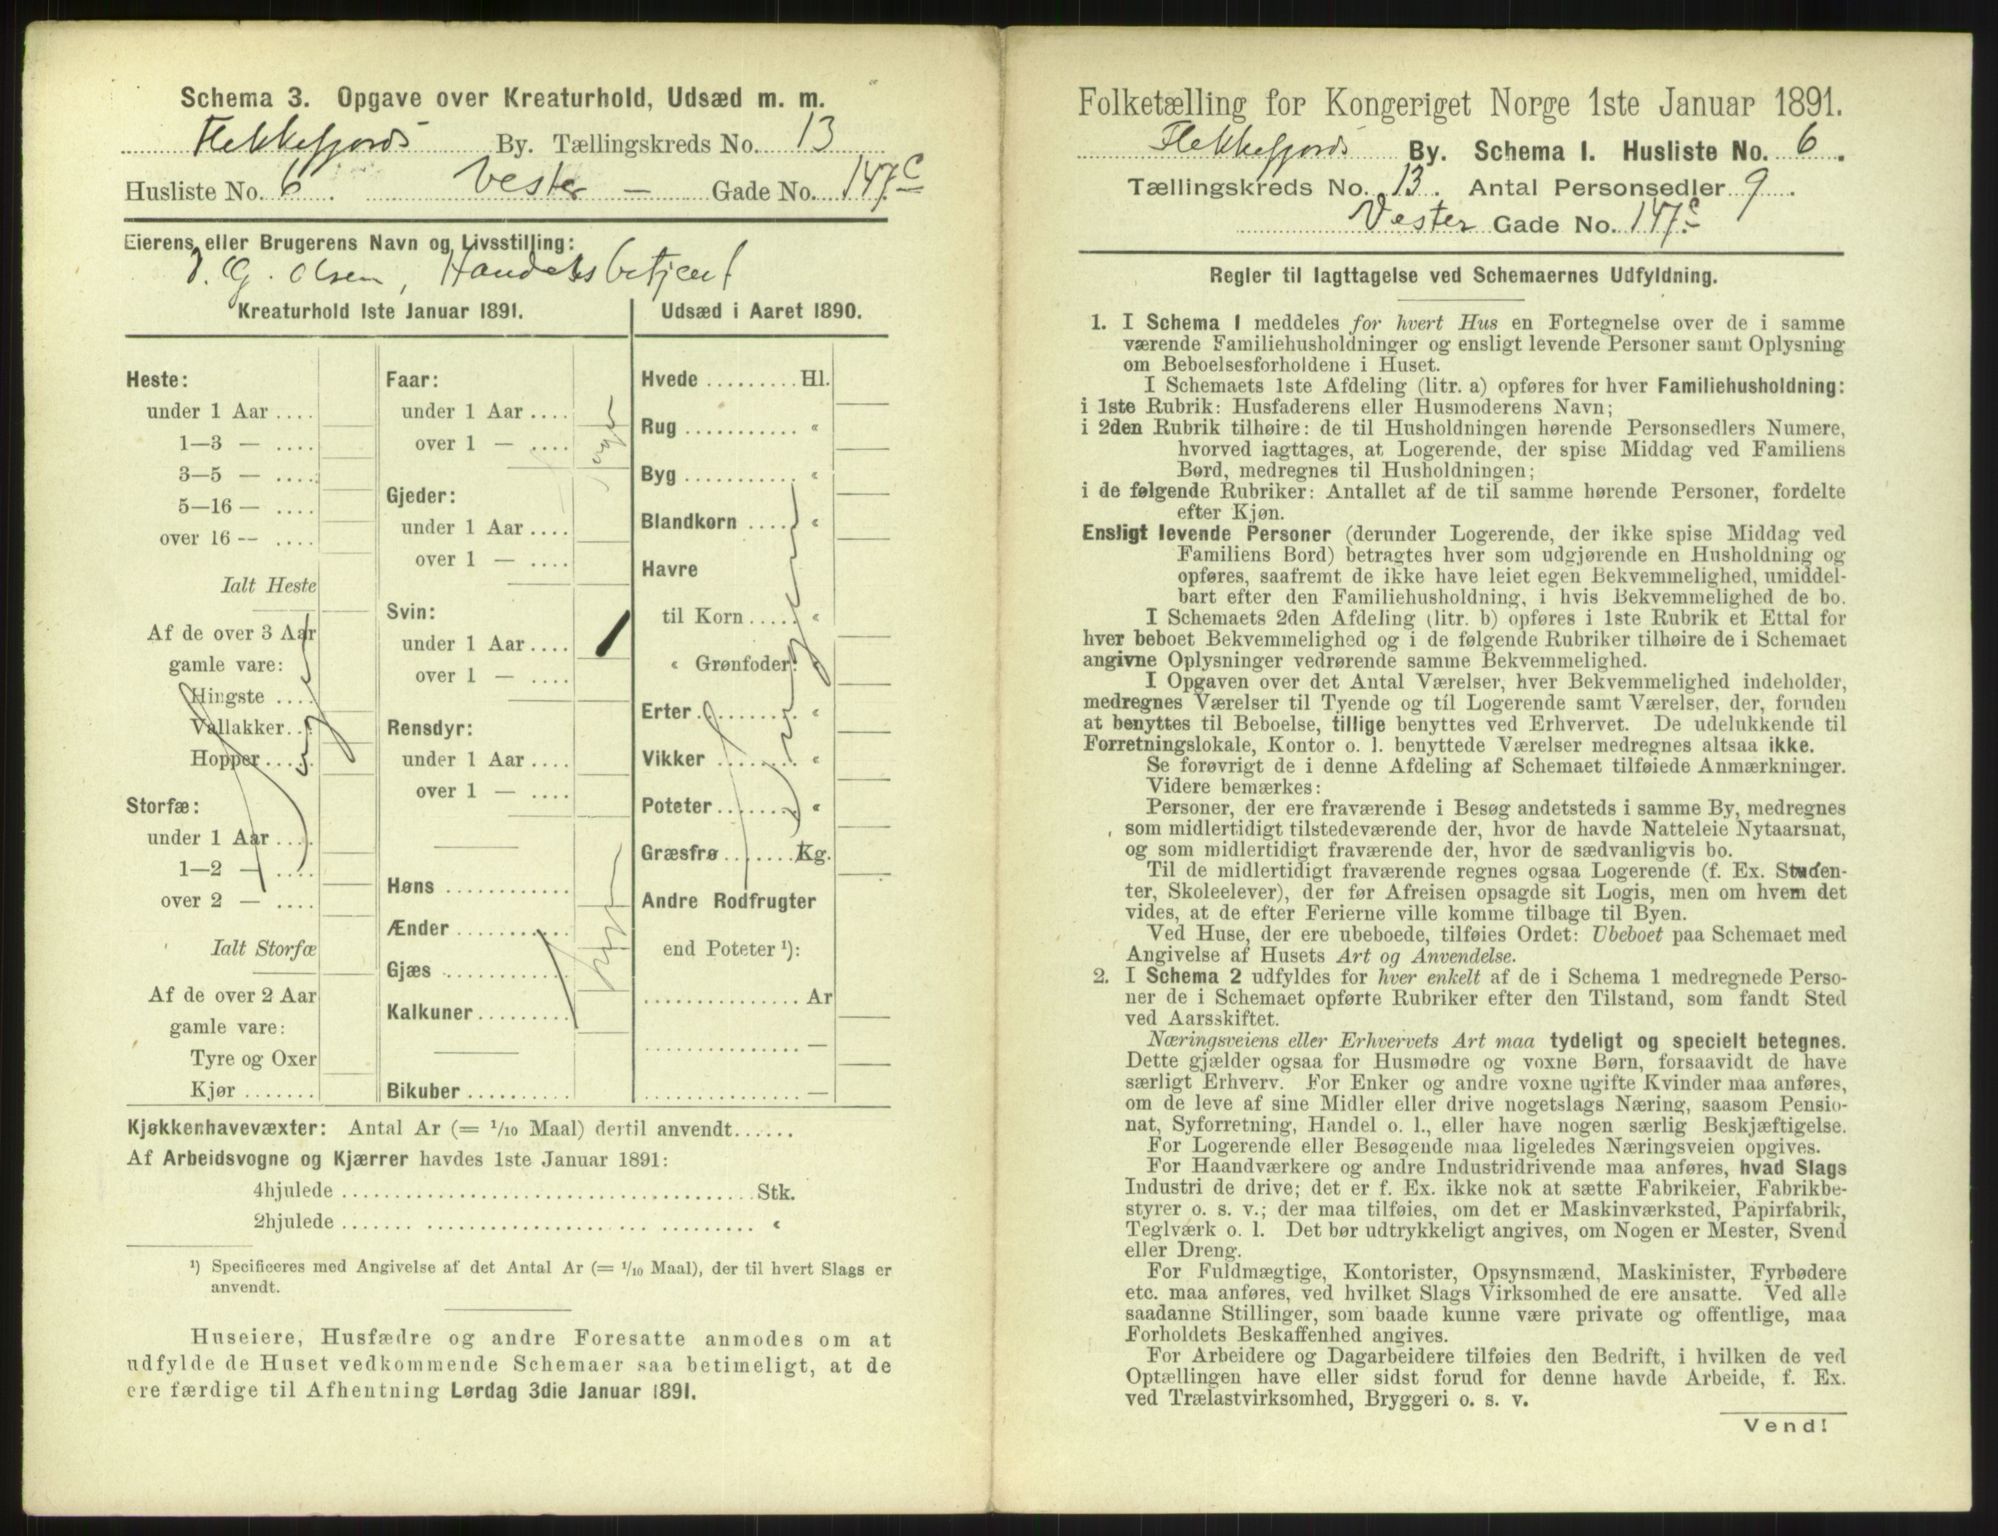 Schema 3. Opgave over Kreaturhold, Udsæd m. m.
Flekkefjords By. Tællingskreds No. 13
Husliste No. 6. Vester — Gade No. 147.c
Eierens eller Brugerens Navn og Livsstilling:
G. Olsen, Handelsbetjent
Kreaturhold 1ste Januar 1891.
Heste:
under 1 Aar ....
1—3 — ....
3—5 — ....
5—16 — ....
over 16 -- ....
Ialt Heste
Af de over 3 Aar
gamle vare:
Hingste ....
Vallakker...
Hopper.....
Storfæ:
under 1 Aar ....
1—2 — ....
over 2 — ....
Ialt Storfæ
Af de over 2 Aar
gamle vare:
Tyre og Oxer
Kjør .......
Ingen
Faar:
under 1 Aar ....
over 1 — ....
Ingen
Gjeder:
under 1 Aar ....
over 1 — ....
Svin:
under 1 Aar .... 1
over 1 — ....
Rensdyr:
under 1 Aar ....
over 1 — ....
Høns ............
Ænder ...........
Gjæs ............
Kalkuner.........
Ingen
Bikuber ..........
Udsæd i Aaret 1890.
Hvede ......... Hl.
Rug ........... “
Byg ........... “
Blandkorn ..... “
Havre
til Korn ..... “
“ Grønfoder. “
Erter ......... “
Vikker ........ “
Poteter ....... “
Græsfrø ....... Kg.
Ingen
Andre Rodfrugter
end Poteter ¹):
................ Ar
................ —
................ —
Kjøkkenhavevæxter: Antal Ar (= 1/10 Maal) dertil anvendt......
Af Arbeidsvogne og Kjærrer havdes 1ste Januar 1891:
4hjulede ........................................ Stk.
2hjulede ........................................ “
¹) Specificeres med Angivelse af det Antal Ar (= 1/10 Maal), der til hvert Slags er
anvendt.
Huseiere, Husfædre og andre Foresatte anmodes om at
udfylde de Huset vedkommende Schemaer saa betimeligt, at de
ere færdige til Afhentning Lørdag 3die Januar 1891.
Folketælling for Kongeriget Norge 1ste Januar 1891.
Flekkefjords By. Schema I. Husliste No. 6.
Tællingskreds No. 13. Antal Personsedler 9.
Vester Gade No. 147c
Regler til Iagttagelse ved Schemaernes Udfyldning.
1. I Schema 1 meddeles for hvert Hus en Fortegnelse over de i samme
værende Familiehusholdninger og ensligt levende Personer samt Oplysning
om Beboelsesforholdene i Huset.
I Schemaets 1ste Afdeling (litr. a) opføres for hver Familiehusholdning:
i 1ste Rubrik: Husfaderens eller Husmoderens Navn;
i 2den Rubrik tilhøire: de til Husholdningen hørende Personsedlers Numere,
hvorved iagttages, at Logerende, der spise Middag ved Familiens
Bord, medregnes til Husholdningen;
i de følgende Rubriker: Antallet af de til samme hørende Personer, fordelte
efter Kjøn.
Ensligt levende Personer (derunder Logerende, der ikke spise Middag ved
Familiens Bord) betragtes hver som udgjørende en Husholdning og
opføres, saafremt de ikke have leiet egen Bekvemmelighed, umiddel-
bart efter den Familiehusholdning, i hvis Bekvemmelighed de bo.
I Schemaets 2den Afdeling (litr. b) opføres i 1ste Rubrik et Ettal for
hver beboet Bekvemmelighed og i de følgende Rubriker tilhøire de i Schemaet
angivne Oplysninger vedrørende samme Bekvemmelighed.
I Opgaven over det Antal Værelser, hver Bekvemmelighed indeholder,
medregnes Værelser til Tyende og til Logerende samt Værelser, der, foruden
at benyttes til Beboelse, tillige benyttes ved Erhvervet. De udelukkende til
Forretningslokale, Kontor o. l. benyttede Værelser medregnes altsaa ikke.
Se forøvrigt de i denne Afdeling af Schemaet tilføiede Anmærkninger.
Videre bemærkes:
Personer, der ere fraværende i Besøg andetsteds i samme By, medregnes
som midlertidigt tilstedeværende der, hvor de havde Natteleie Nytaarsnat,
og som midlertidigt fraværende der, hvor de sædvanligvis bo.
Til de midlertidigt fraværende regnes ogsaa Logerende (f. Ex. Studen-
ter, Skoleelever), der før Afreisen opsagde sit Logis, men om hvem det
vides, at de efter Ferierne ville komme tilbage til Byen.
Ved Huse, der ere ubeboede, tilføies Ordet: Ubeboet paa Schemaet med
Angivelse af Husets Art og Anvendelse.
2. I Schema 2 udfyldes for hver enkelt af de i Schema 1 medregnede Perso-
ner de i Schemaet opførte Rubriker efter den Tilstand, som fandt Sted
ved Aarsskiftet.
Næringsveiens eller Erhvervets Art maa tydeligt og specielt betegnes.
Dette gjælder ogsaa for Husmødre og voxne Børn, forsaavidt de have
særligt Erhverv. For Enker og andre voxne ugifte Kvinder maa anføres,
om de leve af sine Midler eller drive nogetslags Næring, saasom Pensio-
nat, Syforretning, Handel o. l., eller have nogen særlig Beskjæftigelse.
For Logerende eller Besøgende maa ligeledes Næringsveien opgives.
For Haandværkere og andre Industridrivende maa anføres, hvad Slags
Industri de drive; det er f. Ex. ikke nok at sætte Fabrikeier, Fabrikbe-
styrer o. s. v.; der maa tilføies, om det er Maskinværksted, Papirfabrik,
Teglværk o. l. Det bør udtrykkeligt angives, om Nogen er Mester, Svend
eller Dreng.
For Fuldmægtige, Kontorister, Opsynsmænd, Maskinister, Fyrbødere
etc. maa anføres, ved hvilket Slags Virksomhed de ere ansatte. Ved alle
saadanne Stillinger, som baade kunne være private og offentlige, maa
Forholdets Beskaffenhed angives.
For Arbeidere og Dagarbeidere tilføies den Bedrift, i hvilken de ved
Optællingen have eller sidst forud for denne havde Arbeide, f. Ex.
ved Trælastvirksomhed, Bryggeri o. s. v.
Vend!